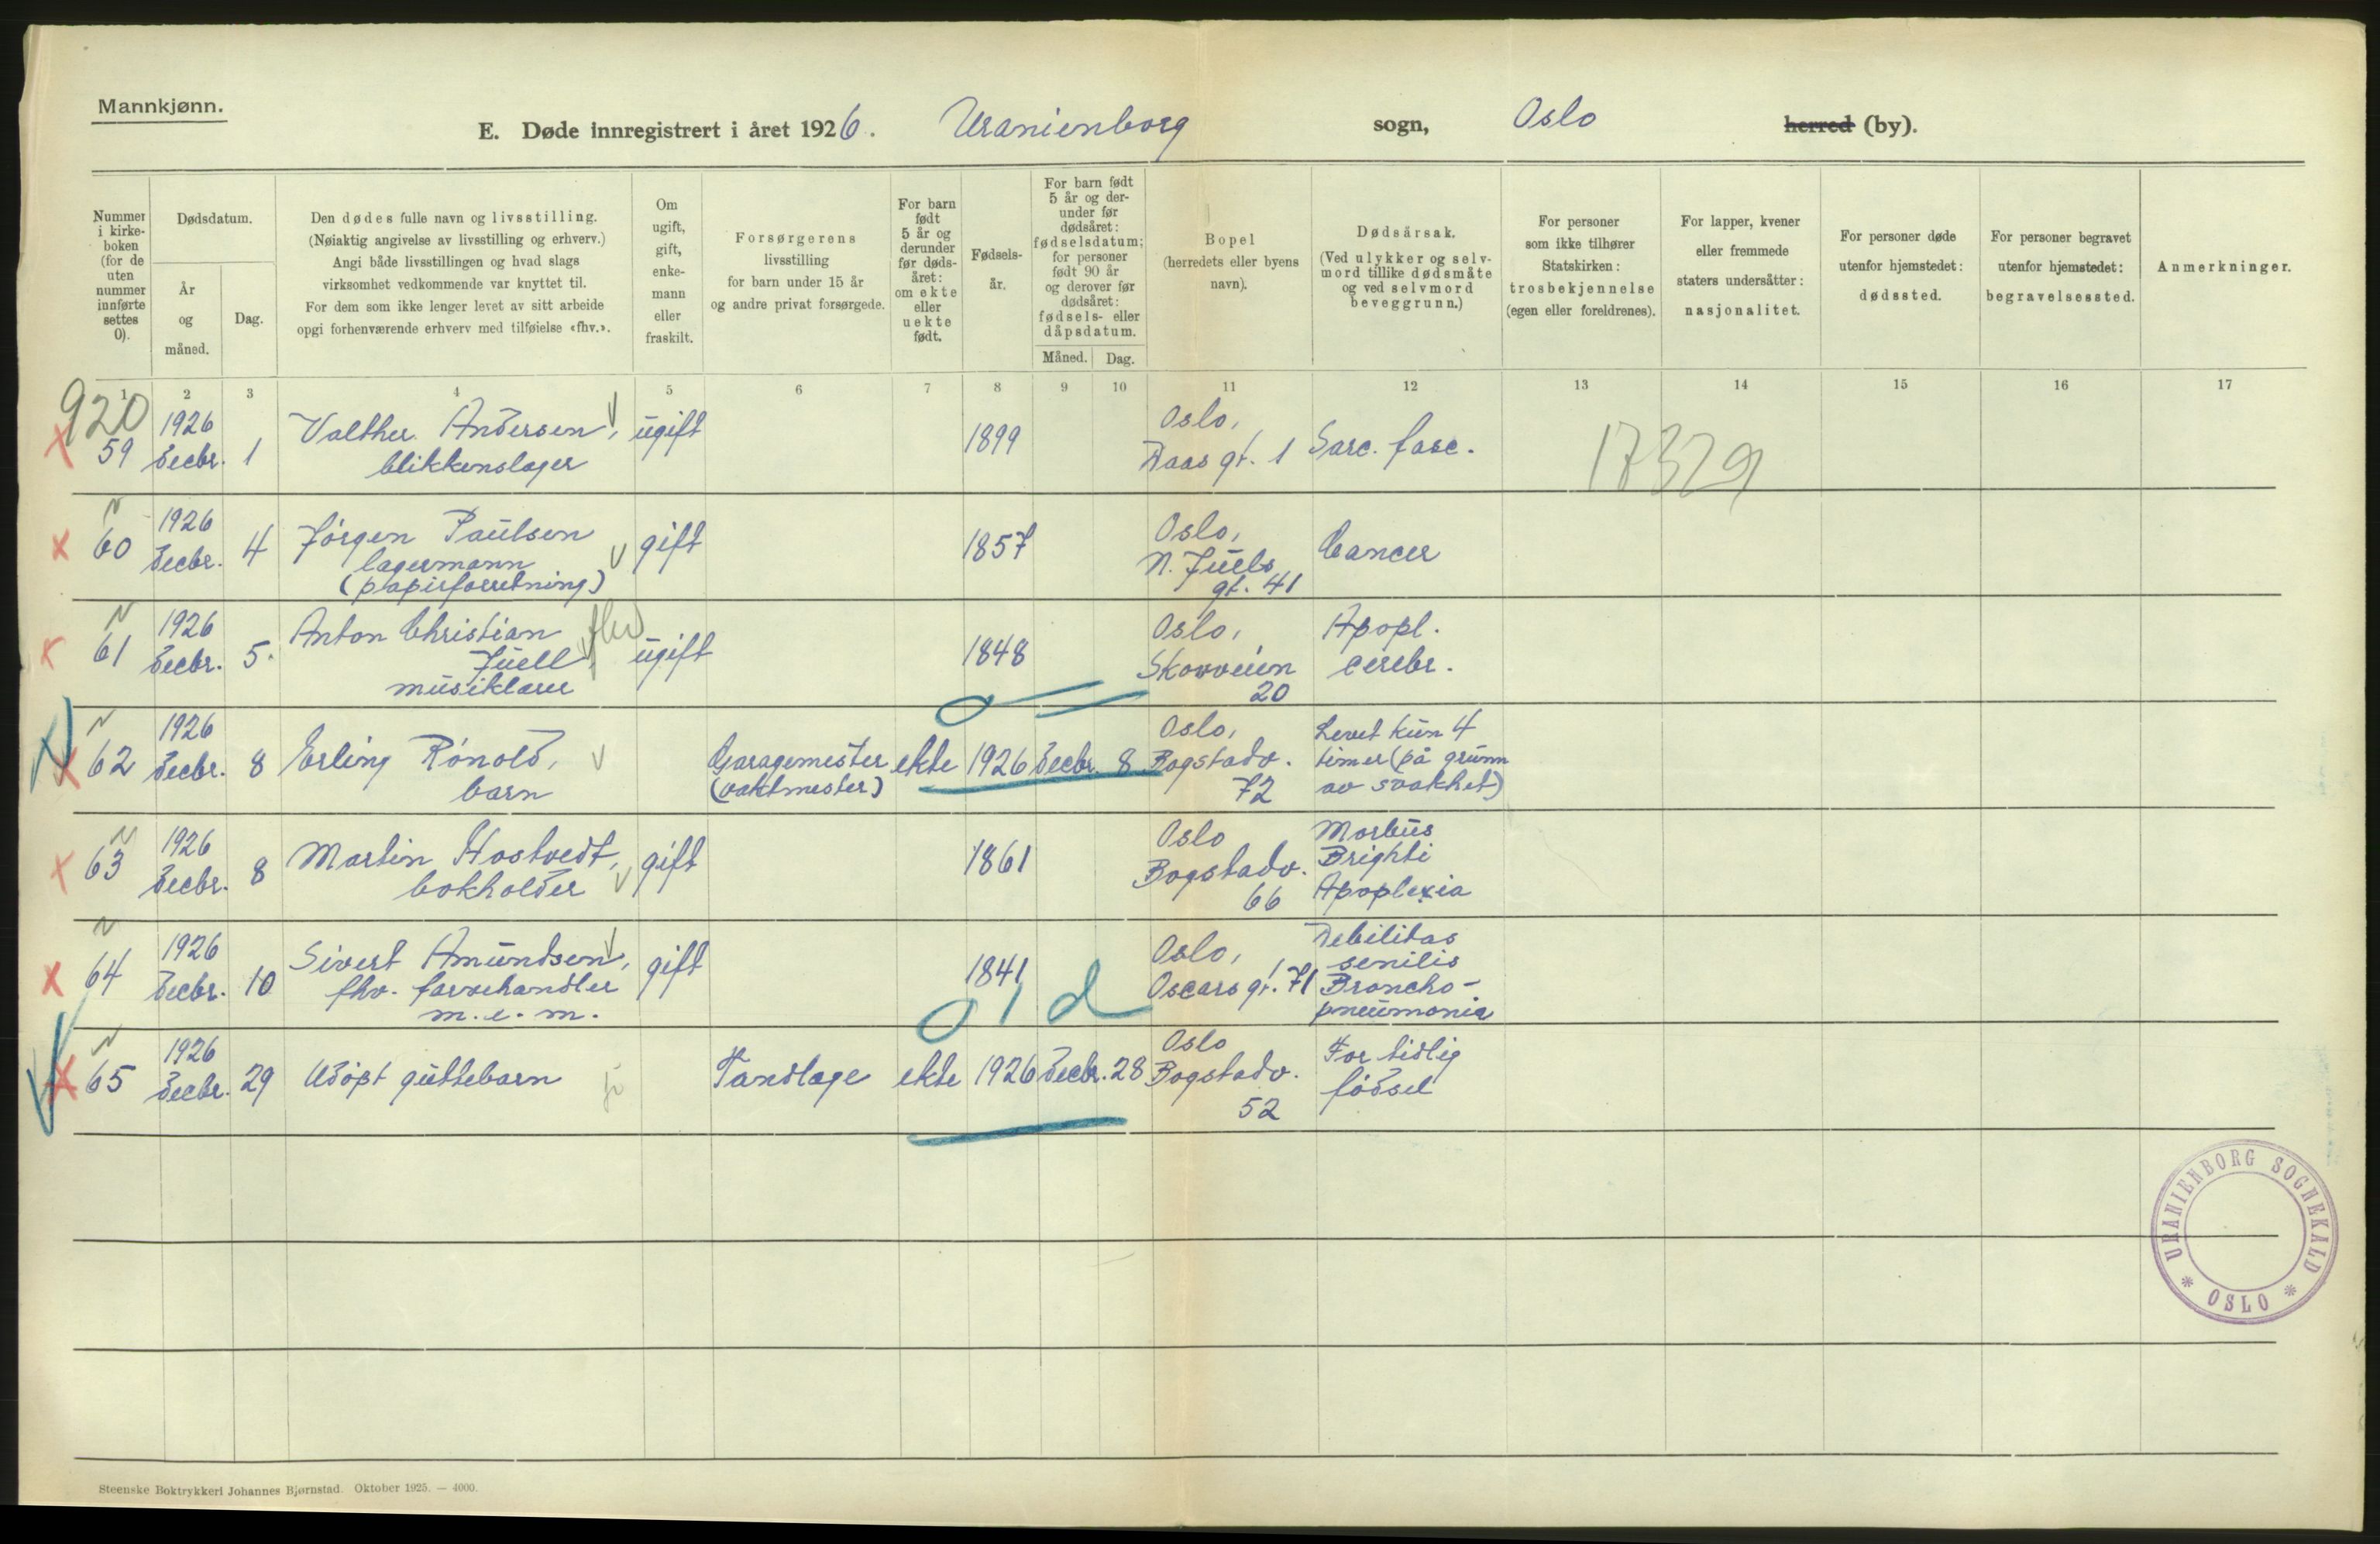 Mannkjønn.
E. Døde innregistrert i året 1926. Uranienborg sogn, Oslo herred (by).
Nummer i kirkeboken (for de uten nummer innførte settes 0).
Dødsdatum.
År og måned.
Dag.
Den dødes fulle navn og livsstilling.
(Nøiaktig angivelse av livsstilling og erhverv.)
Angi både livsstillingen og hvad slags
virksomhet vedkommende var knyttet til.
For dem som ikke lenger levet av sitt arbeide
opgi forhenværende erhverv med tilføielse «fhv.».
Om ugift, gift, enkemann eller fraskilt.
Forsørgerens
livsstilling
for barn under 15 år
og andre privat forsørgede.
For barn født 5 år og derunder før dødsåret: om ekte eller uekte født.
Fødselsår.
For barn født 5 år og derunder før dødsåret: fødselsdatum; for personer født 90 år og derover før dødsåret: fødsels- eller dåpsdatum.
Måned. Dag.
Bopel
(herredets eller byens
navn).
Dødsårsak.
(Ved ulykker og selvmord tillike dødsmåte og ved selvmord beveggrunn.)
For personer
som ikke tilhører
Statskirken:
trosbekjennelse
(egen eller foreldrenes).
For lapper, kvener
eller fremmede
staters undersåtter:
nasjonalitet.
For personer døde
utenfor hjemstedet:
dødssted.
For personer begravet
utenfor hjemstedet:
begravelsessted.
Anmerkninger.
1 2 3 4 5 6 7 8 9 10 11 12 13 14 15 16 17
920
59 1926 Decbr. 1 Valther Andersen, blikkenslager ugift 1899 Oslo, Daas gt. 1 Sarc. fasc. 17329
60 1926 Decbr. 4 Jörgen Paulsen lagermann (papirforretning) gift 1857 Oslo, N. Juels gt. 41 Cancer
61 1926 Decbr. 5. Anton Christian Juell, musiklærer fhv ugift 1848 Oslo, Skovveien 20 Apopl. cerebr.
62 1926 Decbr. 8 Erling Rönold, barn Garagemester (vaktmester) ekte 1926 Decbr. 8 Oslo, Bogstadv. 72 Levet kun 4 timer (på grunn av svakhet)
63 1926 Decbr. 8 Martin Hostvedt, bokholder gift 1861 Oslo Bogstadv. 66 Morbus Brighti Apoplexia
64 1926 Decbr. 10 Sivert Amundsen, fhv. farvehandler m. e. m. gift 1841 Oslo, Oscars gt. 71 Debilitas senilis Broncho-pneumonia
65 1926 Decbr. 29 Udöpt guttebarn Tandlæge ekte 1926 Decbr. 28 Oslo Bogstadv. 52 For tidlig födsel
URANIENBORG SOGNEKALD * OSLO *
Steenske Boktrykkeri Johannes Bjørnstad. Oktober 1925. — 4000.